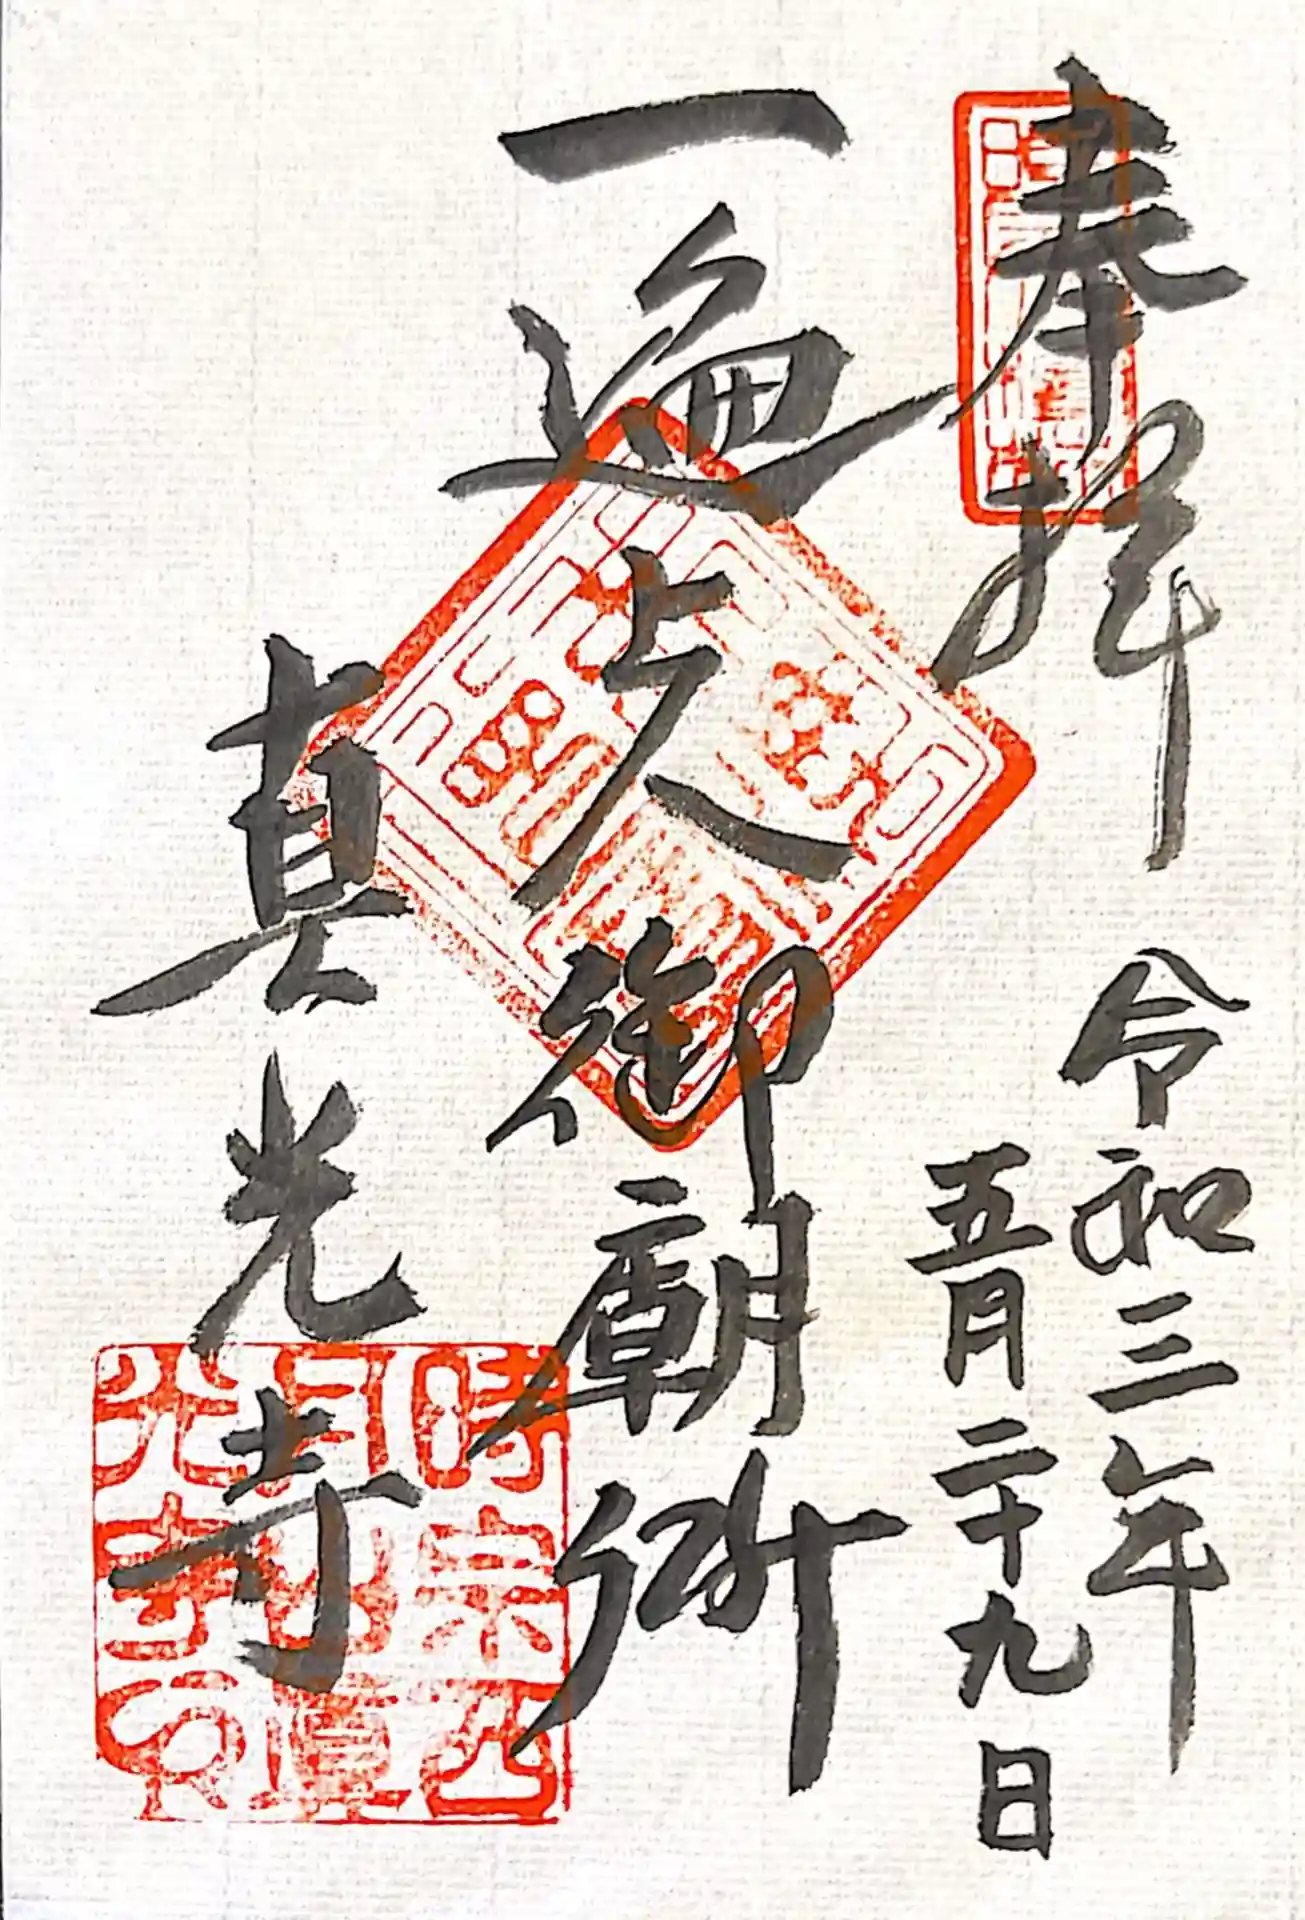 奉拝
令和三年
五月二十九日
一遍上人御廟所
真光寺
時宗西
月山真
光寺印